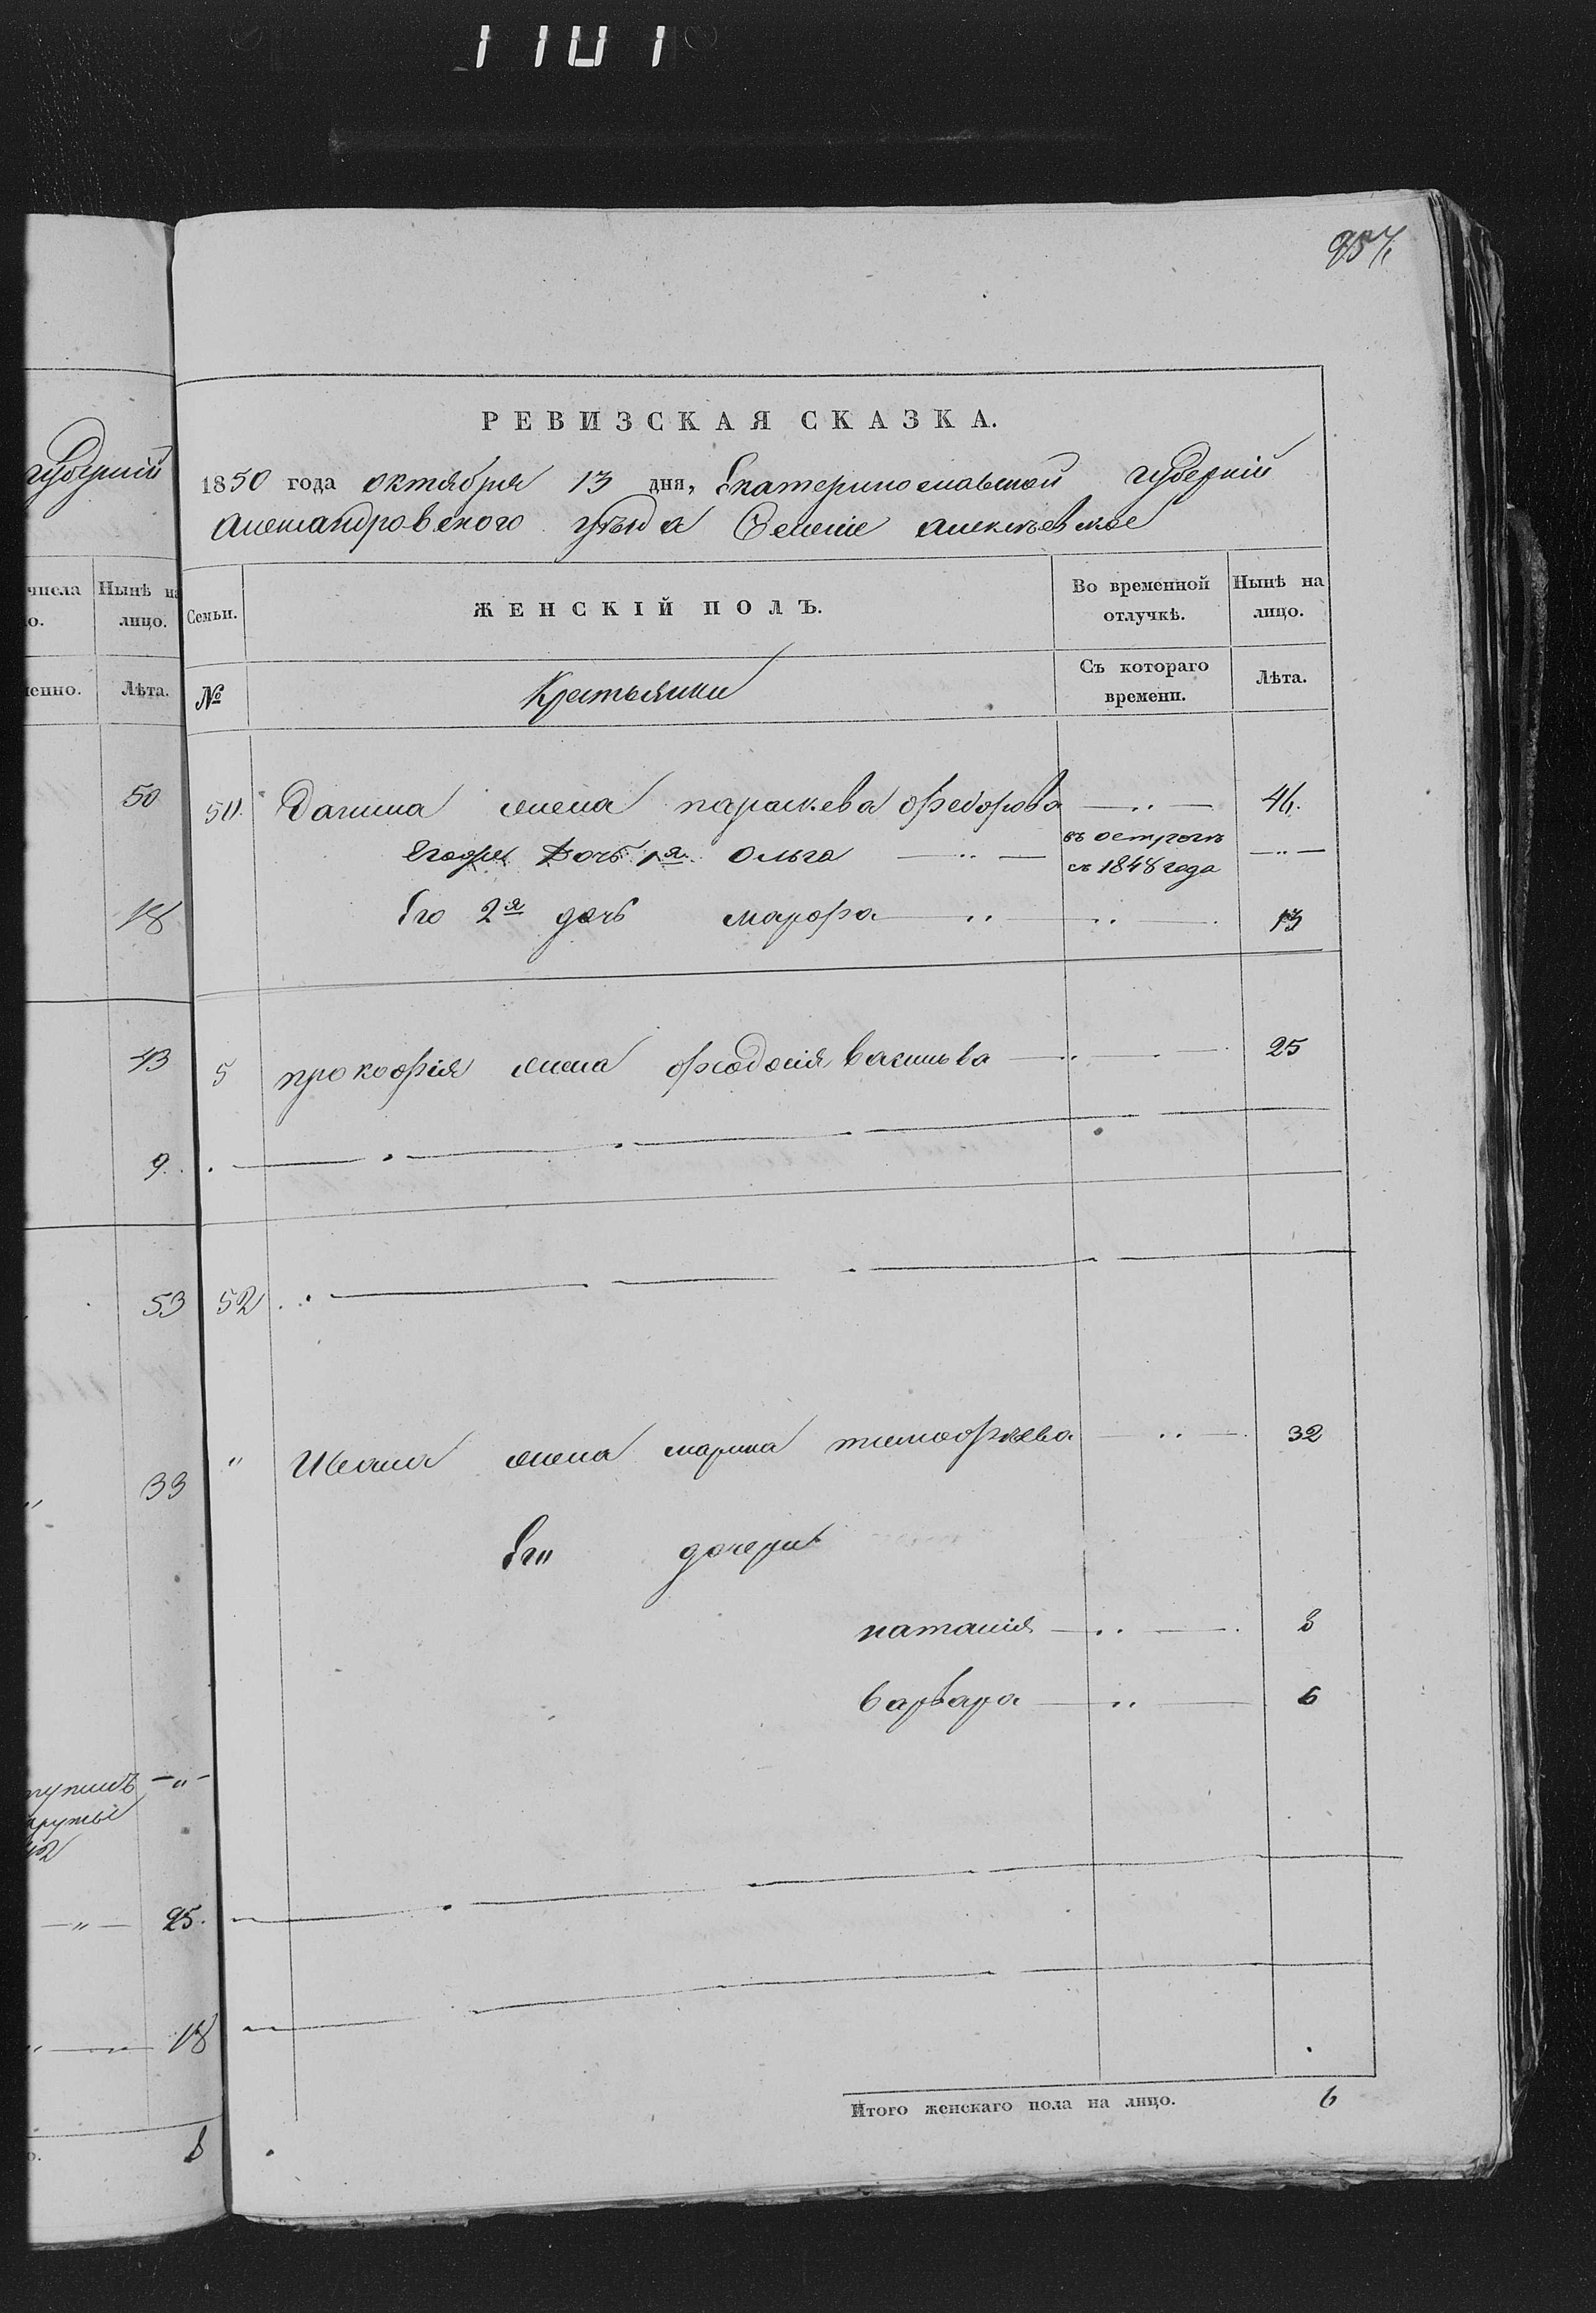 1101
957.
РЕВИЗСКАЯ СКАЗКА.
1850 года октября 13 дня, Екатеринославской губерніи
Александровского уѣзда Селеніе алексѣевское
Семьи.
ЖЕНСКІЙ ПОЛЪ.
Во временной отлучкѣ.
Нынѣ на лицо.
№
Крестьянки
Съ котораго времени.
Лѣта.
50. Данила жена параскева федорова — „ — 46.
дочь 1я Ольга — „ — въ острогѣ съ 1848 года — „ —
Его 2я дочь марфа — „ „ — 13
5 прокофія жена феодосія васильева — „ — 25
52
" Ивана жена марина тимофѣева — „ — 32
Его дочери
наталія — „ — 8
варвара — „ — 6
Итого женскаго пола на лицо. 6
губерніи
числа
Нынѣ на
о.
лицо.
Лѣта.
50
18
43
9.
53
33
— „ —
— „ — 25.
18
8